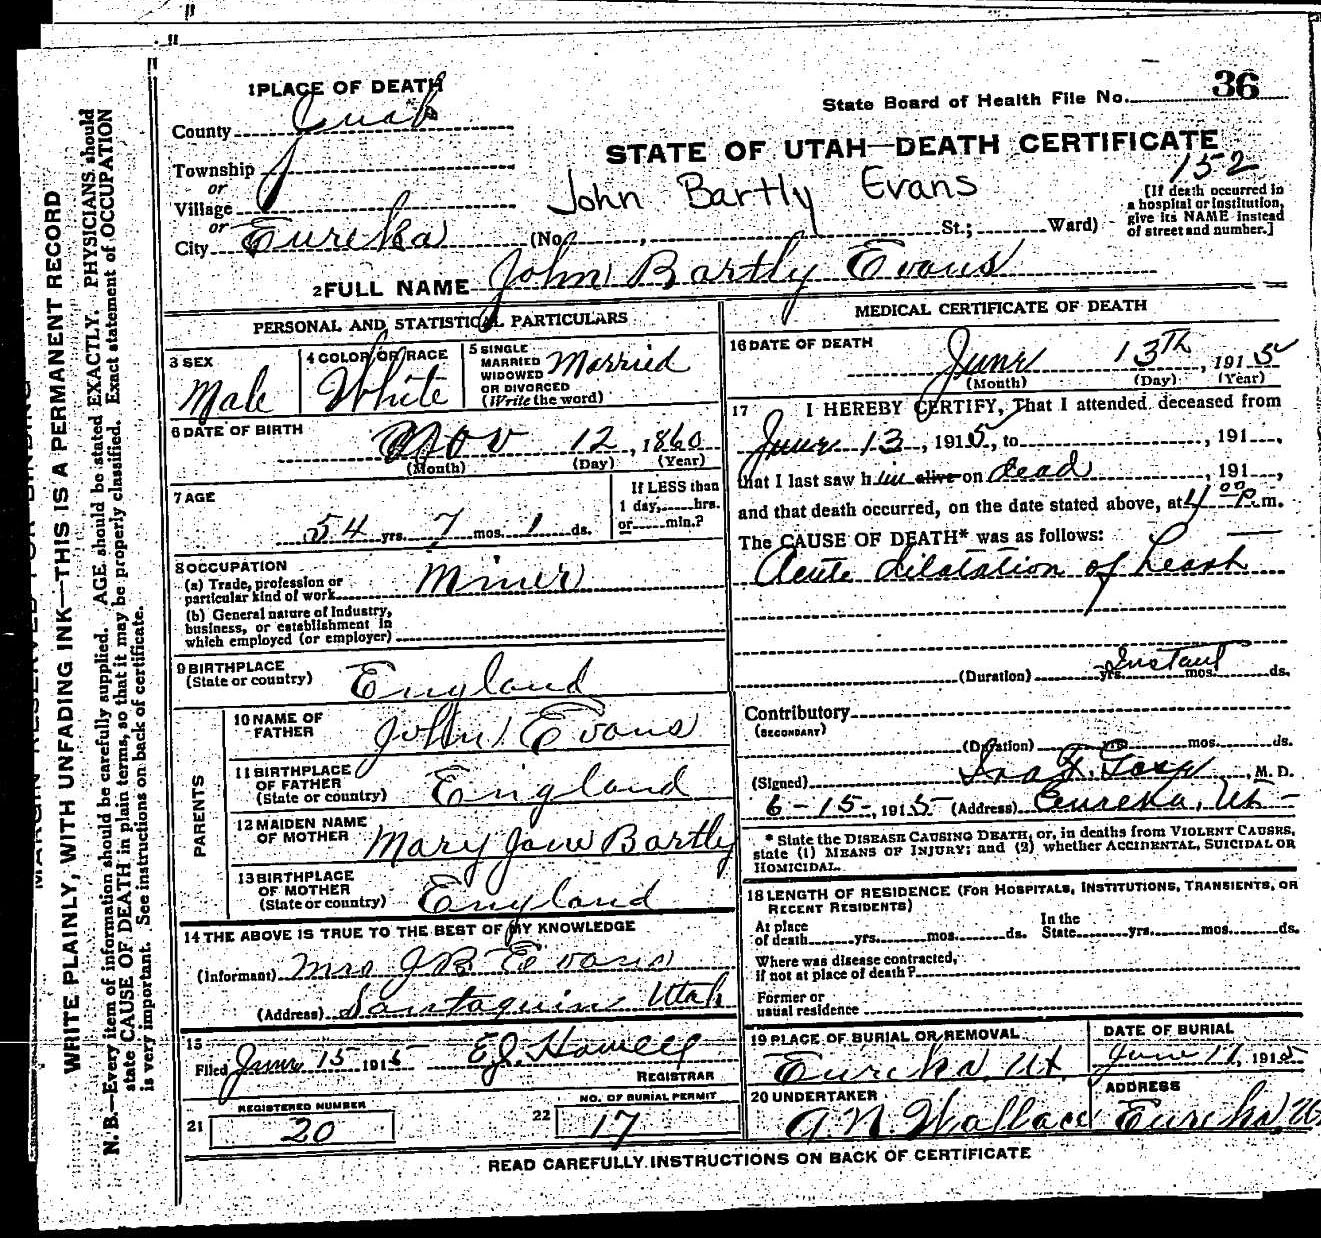 1 PLACE OF DEATH
County Juab
Township
or
Village
or
City Eureka (No. , St.; Ward)
State Board of Health File No. 36
STATE OF UTAH—DEATH CERTIFICATE
152
John Bartly Evans
[If death occurred in
a hospital or institution,
give its NAME instead
of street and number.]
2 FULL NAME John Bartly Evans
PERSONAL AND STATISTICAL PARTICULARS
3 SEX
Male
4 COLOR OR RACE
White
5 SINGLE
MARRIED
WIDOWED
OR DIVORCED
(Write the word)
Married
6 DATE OF BIRTH
Nov 12, 1860
(Month) (Day) (Year)
7 AGE
54 yrs. 7 mos. 1 ds.
If LESS than
1 day, hrs.
or min.?
8 OCCUPATION
(a) Trade, profession or
particular kind of work Miner
(b) General nature of Industry,
business, or establishment in
which employed (or employer)
9 BIRTHPLACE
(State or country) England
PARENTS
10 NAME OF
FATHER John Evans
11 BIRTHPLACE
OF FATHER
(State or country) England
12 MAIDEN NAME
OF MOTHER Mary Jane Bartly
13 BIRTHPLACE
OF MOTHER
(State or country) England
14 THE ABOVE IS TRUE TO THE BEST OF MY KNOWLEDGE
(Informant) Mrs J B Evans
(Address) Santaquin Utah
15
Filed June 15 1915 E.J. Howell
REGISTRAR
REGISTERED NUMBER
21 20
NO. OF BURIAL PERMIT
22 17
MEDICAL CERTIFICATE OF DEATH
16 DATE OF DEATH
June 13th, 1915
(Month) (Day) (Year)
17 I HEREBY CERTIFY, That I attended deceased from
June 13, 1915, to , 191 ,
that I last saw him alive on dead , 191 ,
and that death occurred, on the date stated above, at 4 00 P. m.
The CAUSE OF DEATH* was as follows:
Acute dilatation of heart
(Duration) yrs. Instant mos. ds.
Contributory
(SECONDARY)
(Duration) yrs. mos. ds.
(Signed) M. D.
6-15-, 1915 (Address) Eureka, Ut-
* State the DISEASE CAUSING DEATH, or, in deaths from VIOLENT CAUSES,
state (1) MEANS OF INJURY; and (2) whether ACCIDENTAL, SUICIDAL OR
HOMICIDAL.
18 LENGTH OF RESIDENCE (FOR HOSPITALS, INSTITUTIONS, TRANSIENTS, OR
RECENT RESIDENTS)
At place
of death yrs. mos. ds.
In the
State yrs. mos. ds.
Where was disease contracted,
if not at place of death?
Former or
usual residence
19 PLACE OF BURIAL OR REMOVAL
Eureka, Ut.
DATE OF BURIAL
June 17, 1915
20 UNDERTAKER
A. N. Wallace
ADDRESS
Eureka, U
READ CAREFULLY INSTRUCTIONS ON BACK OF CERTIFICATE
WRITE PLAINLY, WITH UNFADING INK—THIS IS A PERMANENT RECORD
N. B.—Every item of information should be carefully supplied. AGE should be stated EXACTLY. PHYSICIANS should
state CAUSE OF DEATH in plain terms, so that it may be properly classified. Exact statement of OCCUPATION
is very important. See instructions on back of certificate.